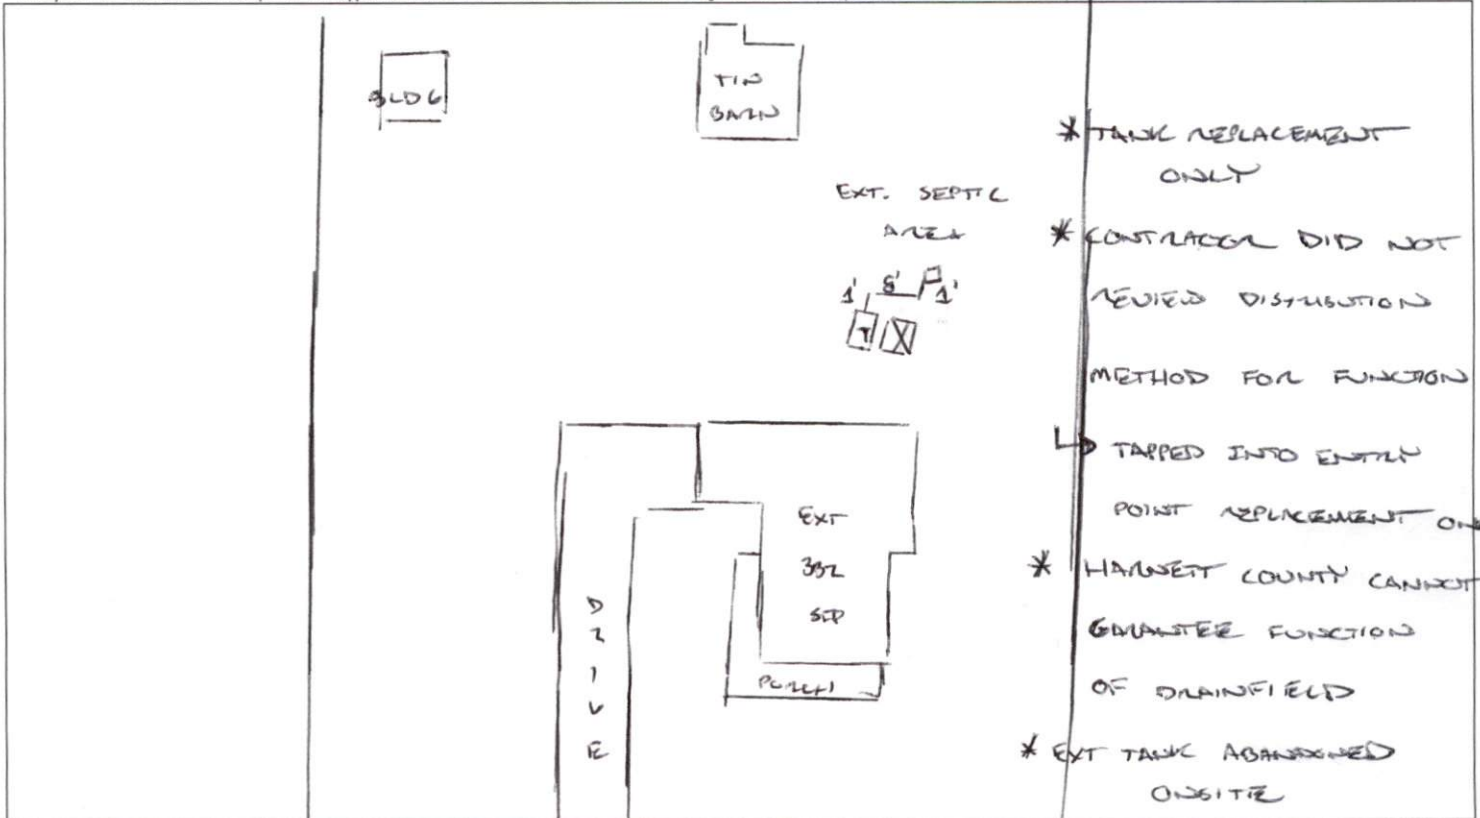 BLDG
TIN
BARN
EXT. SEPTIC
AREA
1' 8' 1'
T
EXT
3BR
SFD
PORCH
DRIVE
* TANK REPLACEMENT
ONLY
* CONTRACOR DID NOT
REVIEW DISTRIBUTION
METHOD FOR FUNCTION
↳ TAPPED INTO ENTRY
POINT REPLACEMENT
* HARNETT COUNTY CANNOT
GARANTEE FUNCTION
OF DRAINFIELD
* EXT TANK ABANDONED
ONSITE